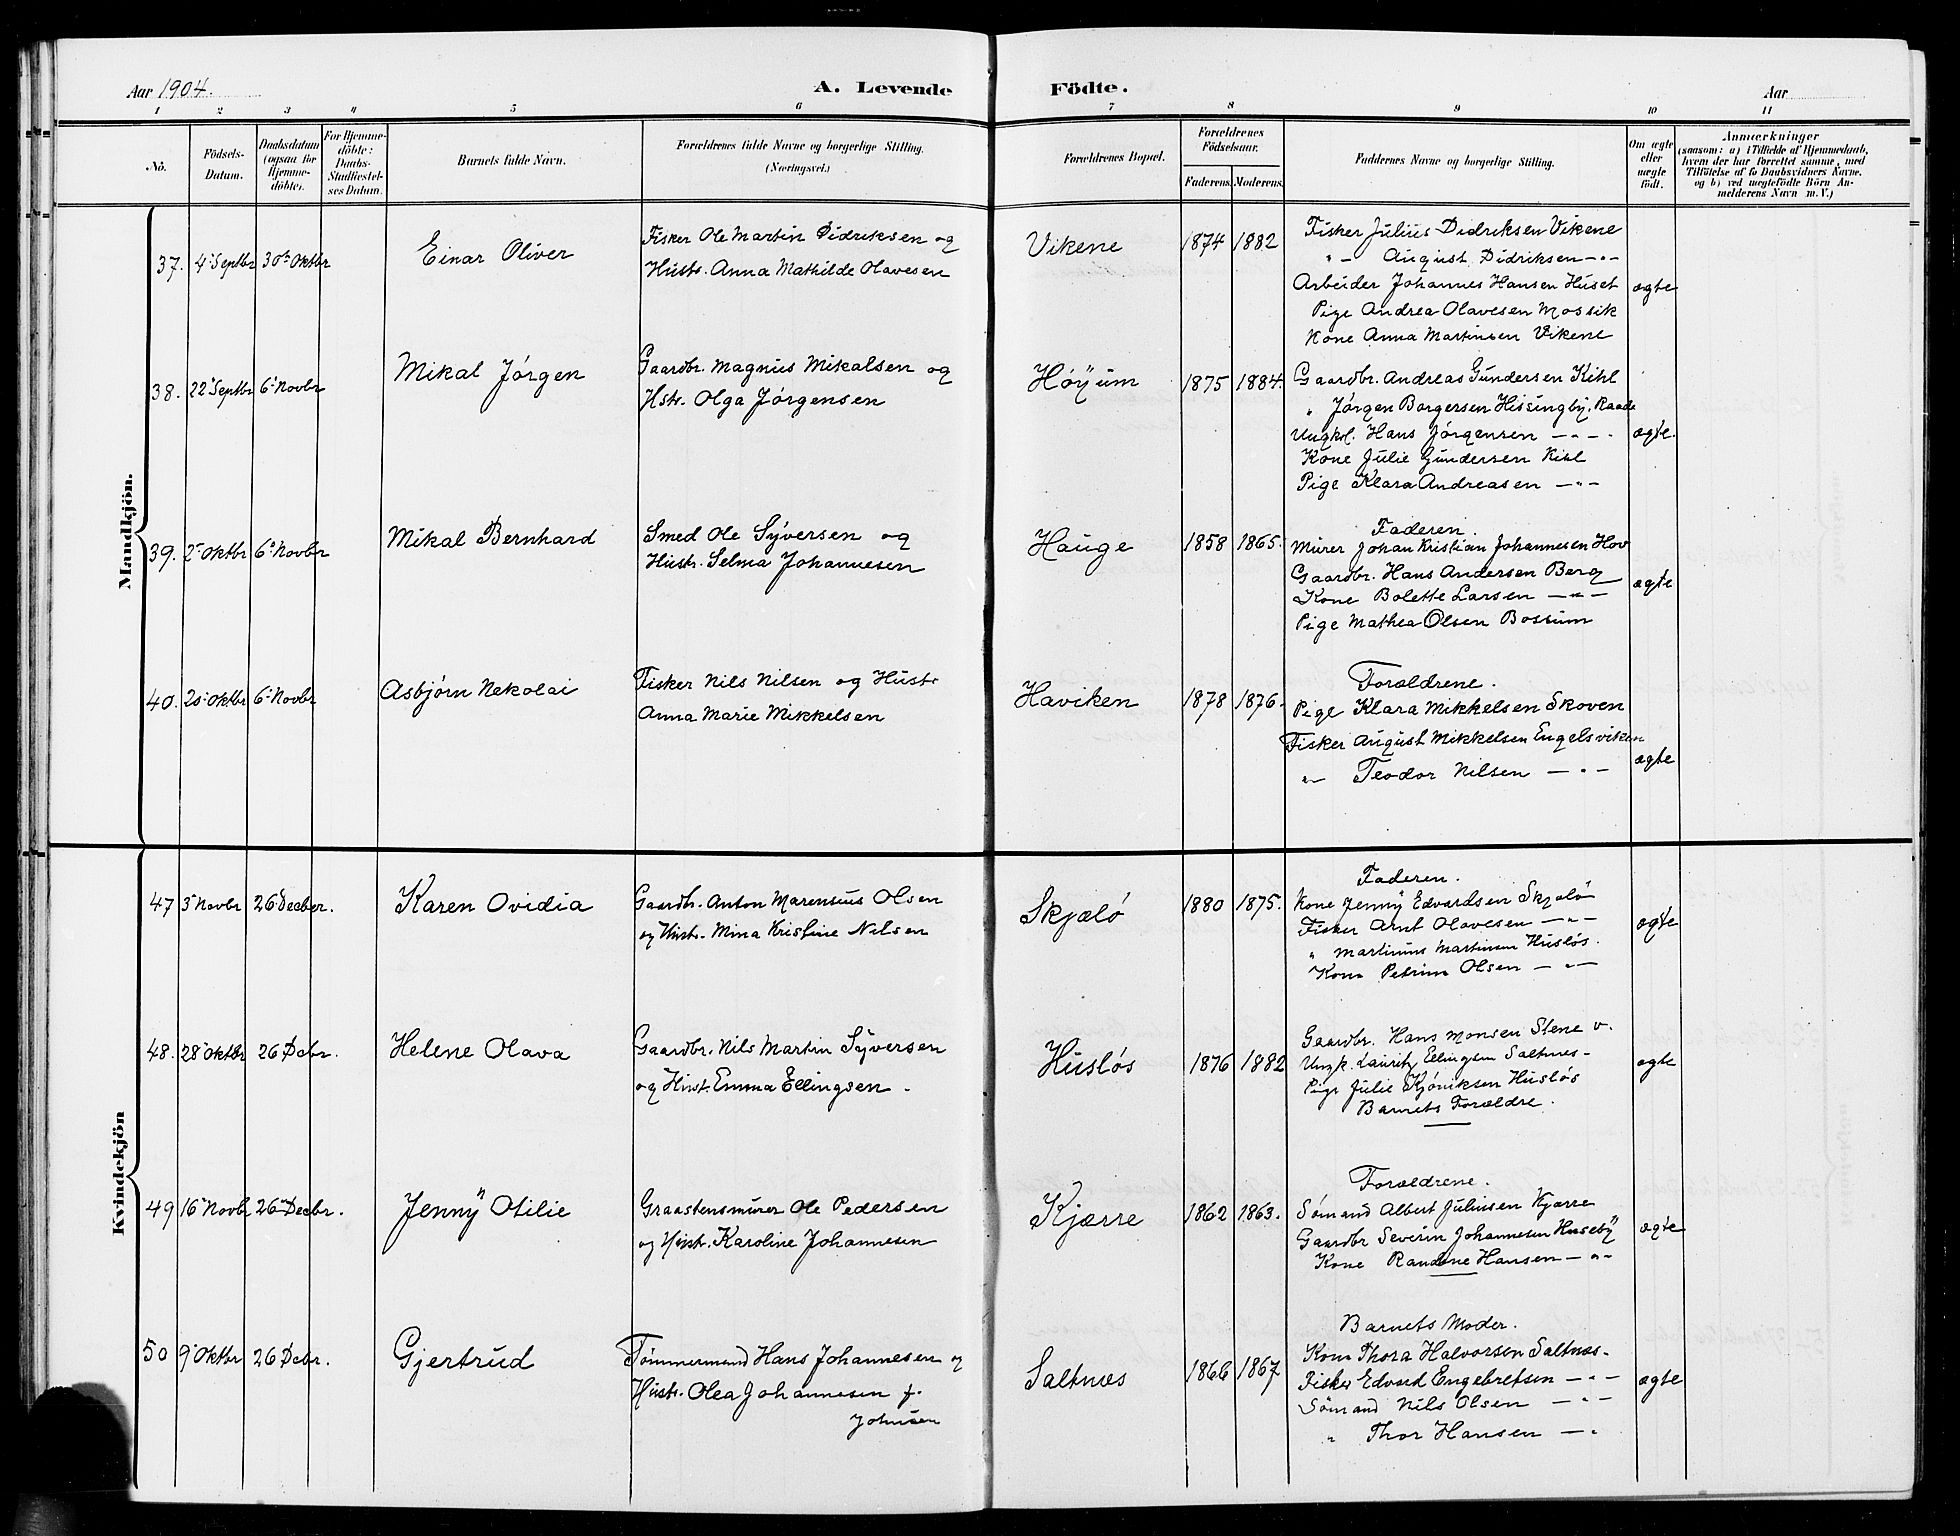 Aar 1904.
A. Levende Födte.
Aar
1 2 3 4 5 6 7 8 9 10 11
Nö.
Födsels-Datum.
Daabsdatum (ogsaa for Hjemmedöbte).
For Hjemmedöbte: Daabs-Stadfæstelses Datum.
Barnets fulde Navn.
Forældrenes fulde Navne og borgerlige Stilling. (Næringsvei.)
Forældrenes Bopæl.
Forældrenes Födselsaar.
Faderens. Moderens.
Faddernes Navne og borgerlige Stilling.
Om ægte eller uægte födt.
Anmærkninger
(saasom: a) i Tilfælde af Hjemmedaab, hvem der har forrettet samme, med Tilföielse af to Daabsvidners Navne, og b) ved uægtefödte Börn Anmelderens Navn m. V.)
Mandkjön.
37. 4 Septbr 30te Oktbr Einar Oliver
Fisker Ole Martin Didriksen og
Hustr. Anna Mathilde Olavesen
Vikene 1874 1882
Fisker Julius Didriksen Vikene
" – August Didriksen – " –
Arbeider Johannes Hansen Huset
Pige Andrea Olavesen Mossik
Kone Anna Martinsen Vikene
ægte
38. 22 Septbr 6 Novbr Mikal Jörgen
Gaardbr. Magnus Mikalsen og
Hstr. Olga Jörgensen
Höyum 1875 1884.
Gaardbr. Andreas Gundersen Kihl
" Jörgen Borgersen Hissingby, Raade
Ungkl. Hans Jörgensen – " – "
Kone Julie Gundersen Kihl
Pige Klara Andreasen – " –
ægte.
39. 2 Oktbr 6 Novbr Mikal Bernhard
Smed Ole Syversen og
Hustr. Selma Johannesen
Hauge 1858 1865.
Faderen.
Murer Johan Kristian Johannesen Hov
Gaardbr. Hans Andersen Berg
Kone Bolette Larsen – " –
Pige Mathea Olsen Bossum
ægte
40. 20 Oktbr 6 Novbr Asbjørn Nekolai
Fisker Nils Nilsen og Hustr
Anna Marie Mikkelsen
Haviken 1878 1876.
Forældrene.
Pige Klara Mikkelsen Skoven
Fisker August Mikkelsen Engelsviken
" – Teodor Nilsen – " –
ægte
Kvindekjön
47 3 Novbr 26 Decber. Karen Ovidia
Gaardbr. Anton Marensius Olsen
og Hustr. Mina Kristine Nilsen
Skjælö 1880 1875.
Faderen.
Kone Jenny Edvardsen Skjælö
Fisker Arnt Olavesen – " –
" Martinius Martinsen Huslös.
Kone Petrine Olsen – " –
ægte
48. 28 Oktbr 26 Dcbr. Helene Olava
Gaardbr. Nils Martin Syversen
og Hust. Emma Ellingsen.
Huslös 1876 1882
Gaardbr. Hans Monsen Stene v.
Ungk. Lauritz Ellingsen Saltnes –
Pige Julie Kjöniksen Huslös
Barnets Forældre.
ægte
49 16 Novbr 26 Decbr. Jenny Otilie
Graastensmurer Ole Pedersen
og Hust. Karoline Johannesen
Kjærre 1862 1863.
Forældrene.
Sömand Albert Juliusen Kjærre
Gaardbr Severin Johannesen Huseby
Kone Randine Hansen – " –
ægte
50 9 Oktbr 26 Dcbr. Gjertrud
Tömmermand Hans Johannesen og
Hustr. Olea Johannesen f.
Johnsen
Saltnæs 1866 1867
Barnets Moder.
Kone Thora Halvorsen Saltnæs.
Fisker Edvard Engebretsen – " –
Sömand Nils Olsen – " –
" Thor Hansen – "
ægte